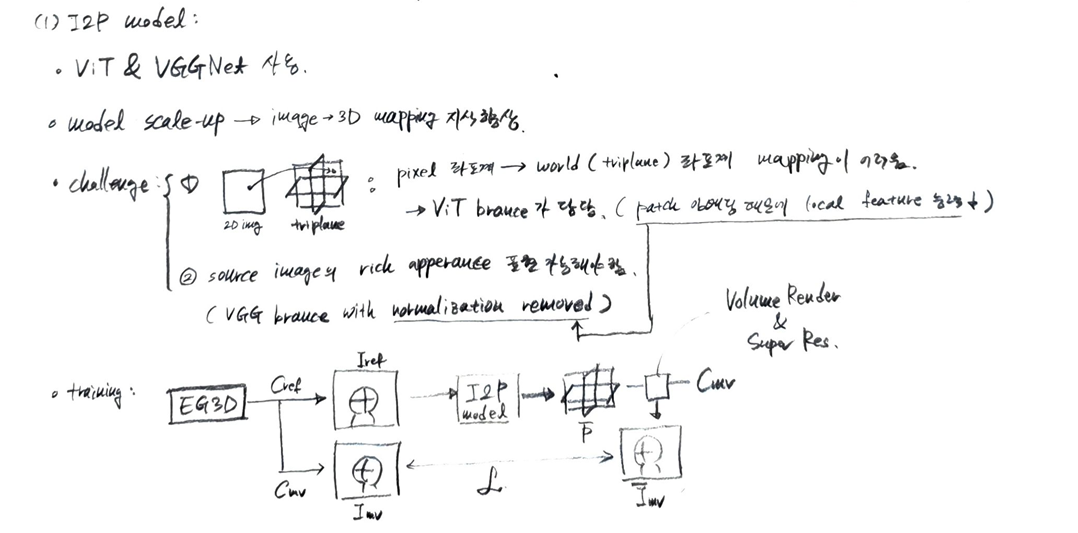 (1) I2P model:
• ViT & VGGNet 사용.
• model scale-up → image → 3D mapping 지식 향상.
• challenge: ① : pixel 좌표계 → world (triplane) 좌표계 mapping이 어려움.
2D img triplane
→ ViT brance가 담당. (patch 임베딩 때문에 local feature 능력↓)
② source image의 rich apperance 표현 가능해야함.
(VGG brance with normalization removed)
Volume Render
&
Super Res.
• training: EG3D Cref Iref I2P model P̄ Cmv
Cmv Imv L Īmv